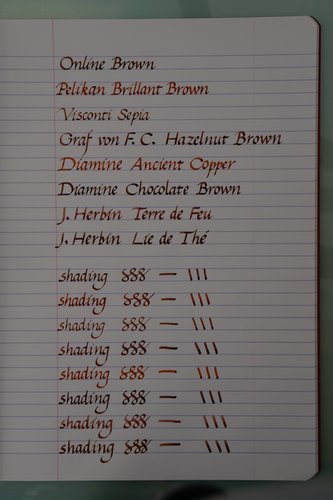 Online Brown
Pelikan Brillant Brown
Visconti Sepia
Graf von F. C. Hazelnut Brown
Diamine Ancient Copper
Diamine Chocolate Brown
J. Herbin Terre de Feu
J. Herbin Lie de Thé
shading 888 — \ \ \
shading 888 — \ \ \
shading 888 — \ \ \
shading 888 — \ \ \
shading 888 — \ \ \
shading 888 — \ \ \
shading 888 — \ \ \
shading 888 — \ \ \